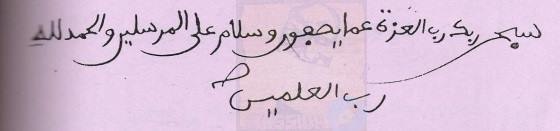 سبحن ربك رب العزة عما يصفون وسلام على المرسلين والحمد لله
رب العلمين